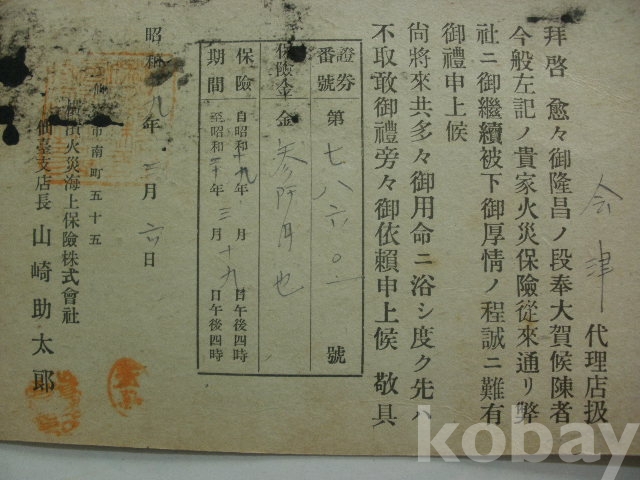 会津代理店扱
拝啓 愈々御隆昌ノ段奉大賀候陳者
今般左記ノ貴家火災保險從來通リ弊
社ニ御繼續被下御厚情ノ程誠ニ難有
御禮申上候
尚將來共多々御用命ニ浴シ度ク先ハ
不取敢御禮旁々御依賴申上候 敬具
證券番號 第七八六〇 號
保險金 金参阡円也
保險期間 自昭和十九年 月 日午後四時
至昭和二十年三月十九日午後四時
昭和 九年 月 日
仙 市南町五十五
橫濱火災海上保險株式會社
仙臺支店長 山崎助太郎
kobay